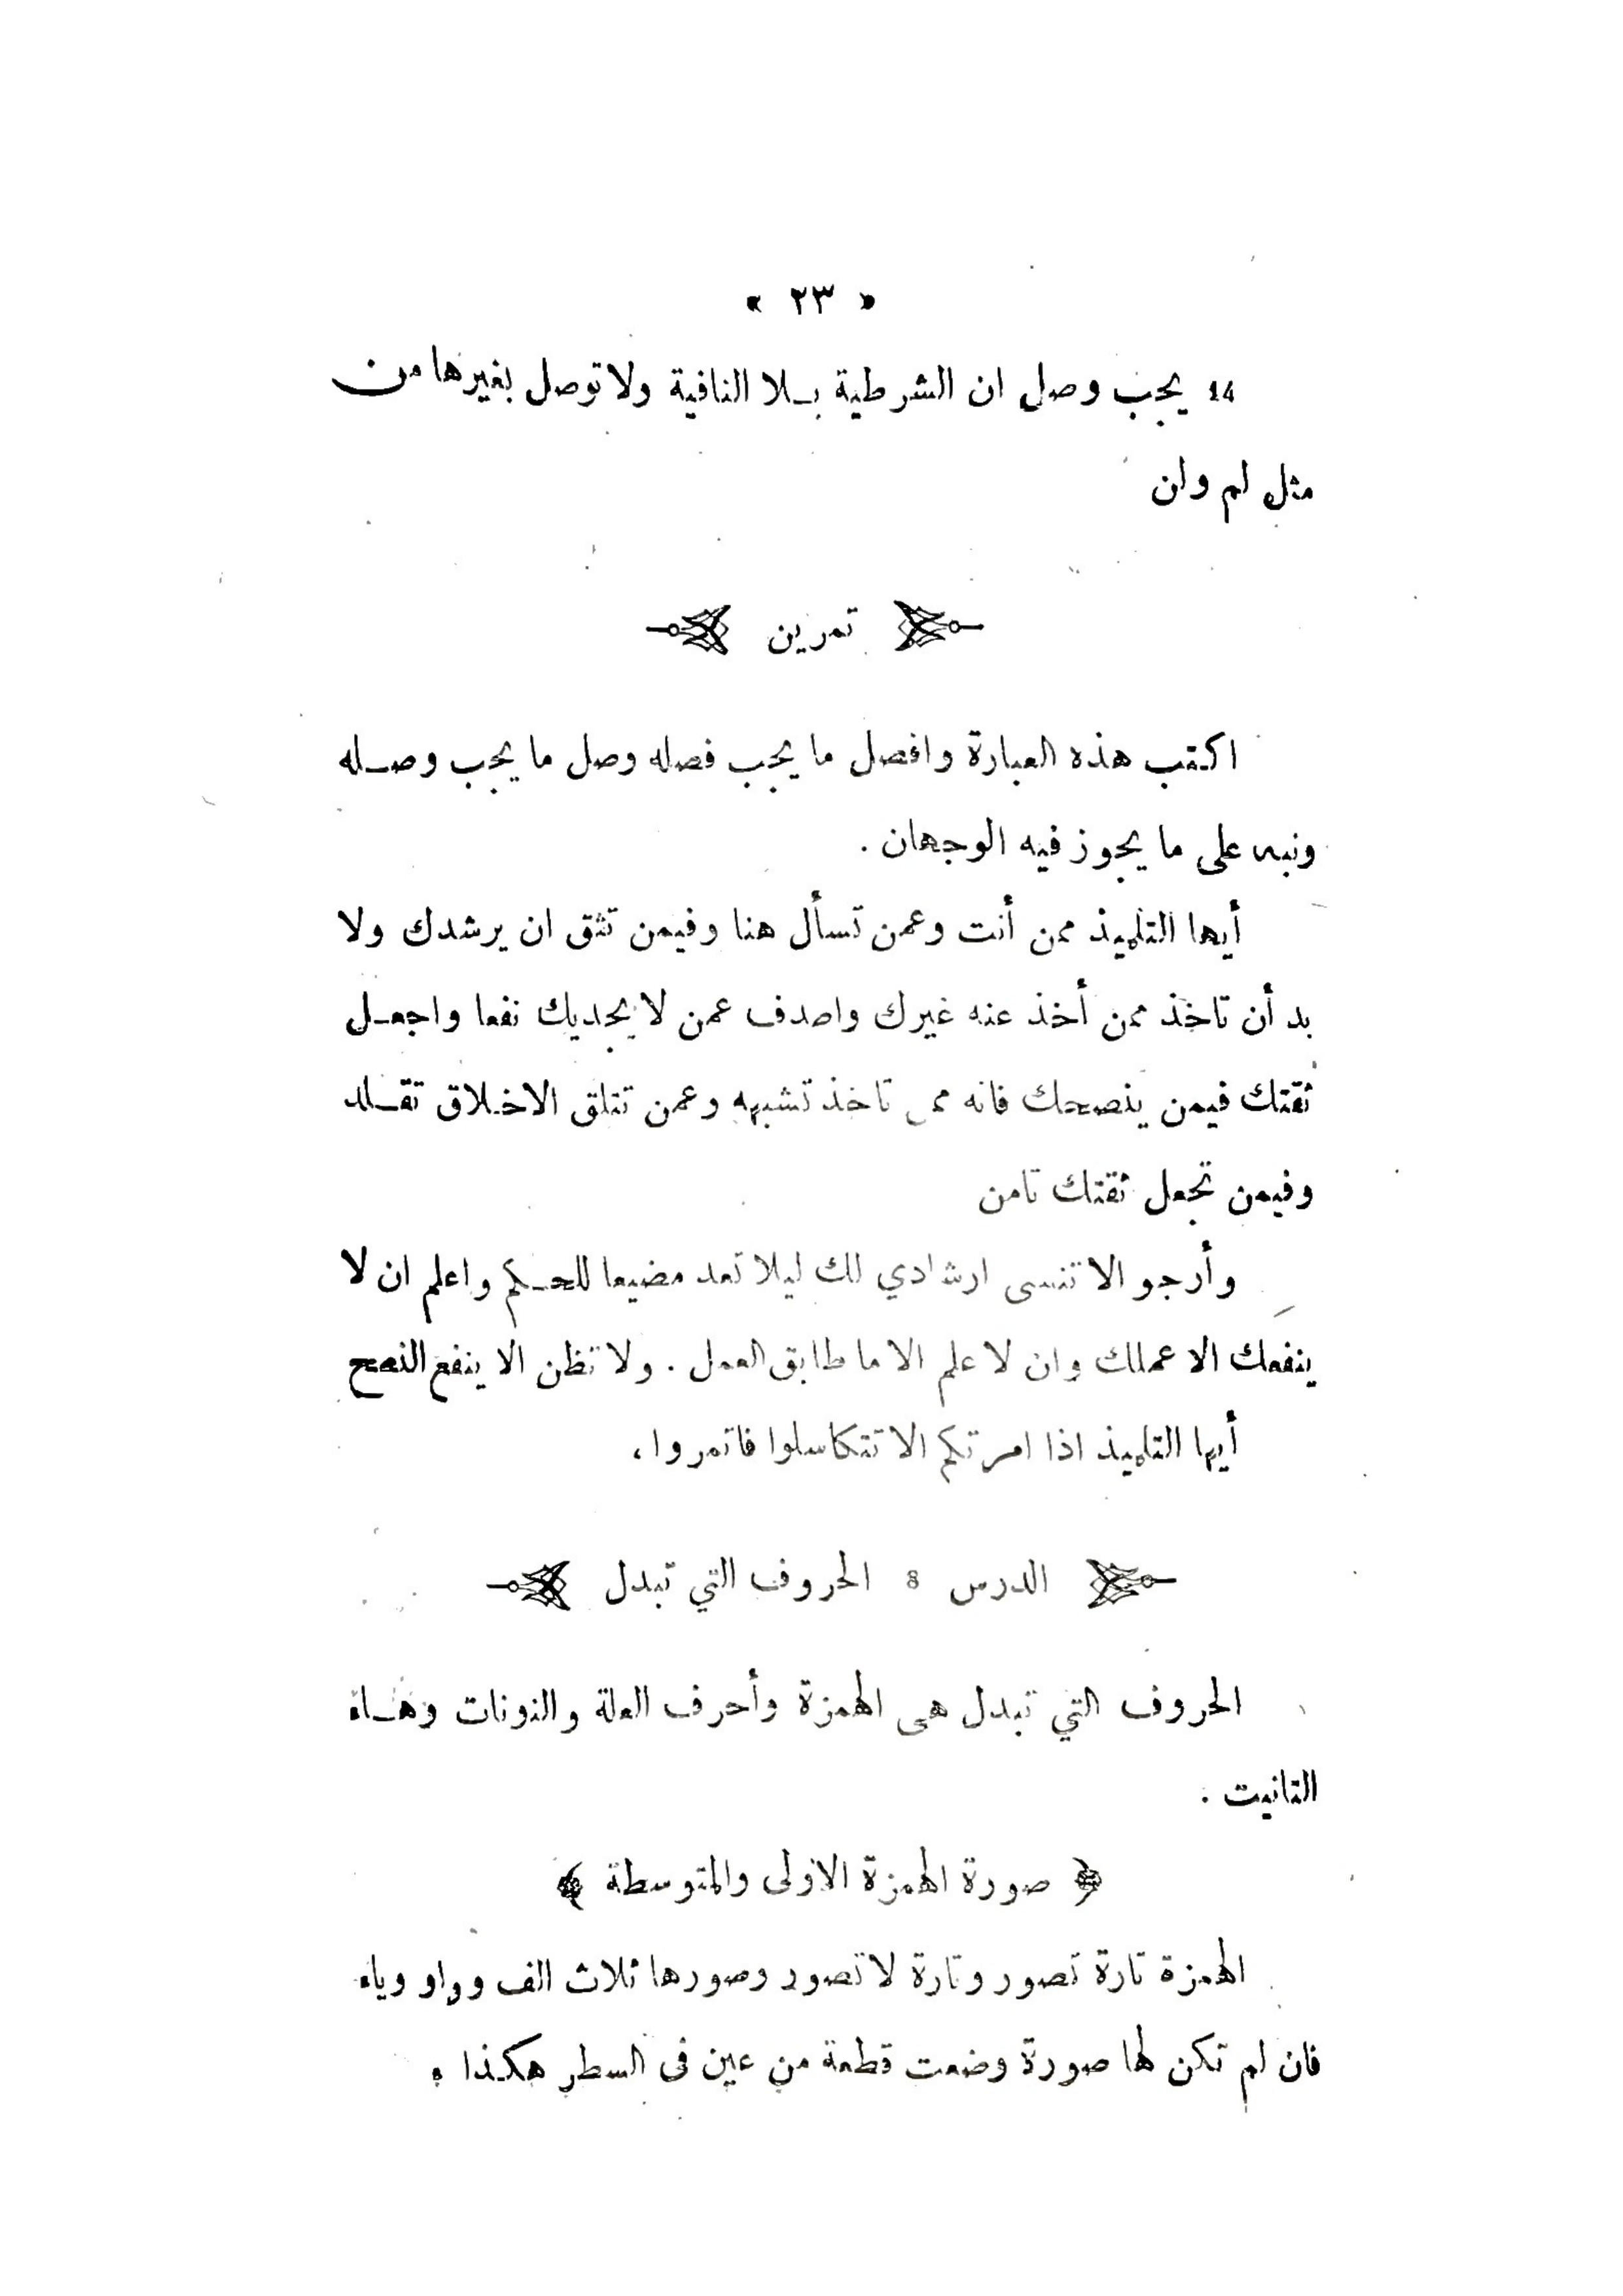 « ٢٣ »
14 يجب وصل ان الشرطية بـلا النافية ولا توصل بغيرها من
مثل لم وان
تمرين
اكتب هذه العبارة وافصل ما يجب فصله وصل ما يجب وصـله
ونبه على ما يجوز فيه الوجهان .
أيها التلميذ ممن أنت وعمن تسأل هنا وفيمن تثق ان يرشدك ولا
بد أن تاخذ ممن أخذ عنه غيرك واصدف عمن لا يجديك نفعا واجعـل
ثقتك فيمن ينصحك فانه تاخذ تشبهه وعمن تتلق الاخـلاق تقـلد
وفيمن تجعل ثقتك تامن
وأرجو الا تنسى ارشادي لك ليلا تعد مضيعا للحـكم واعلم ان لا
ينفعك الا عملك وان لا علم الا ما طابق العمل . ولا تظن الا ينفع النصح
أيها التلميذ اذا امرتكم الا تتكاسلوا فاتمروا ،
الدرس 8 الحروف التي تبدل
الحروف التي تبدل هى الهمزة وأحرف العلة والنونات وهـاء
التانيت .
﴿ صورة الهمزة الاولى والمتوسطة ﴾
الهمزة تارة تصور وتارة لا تصور وصورها ثلاث الف وواو وياء
فان لم تكن لها صورة وضعت قطعة من عين فى السطر هكذا ء